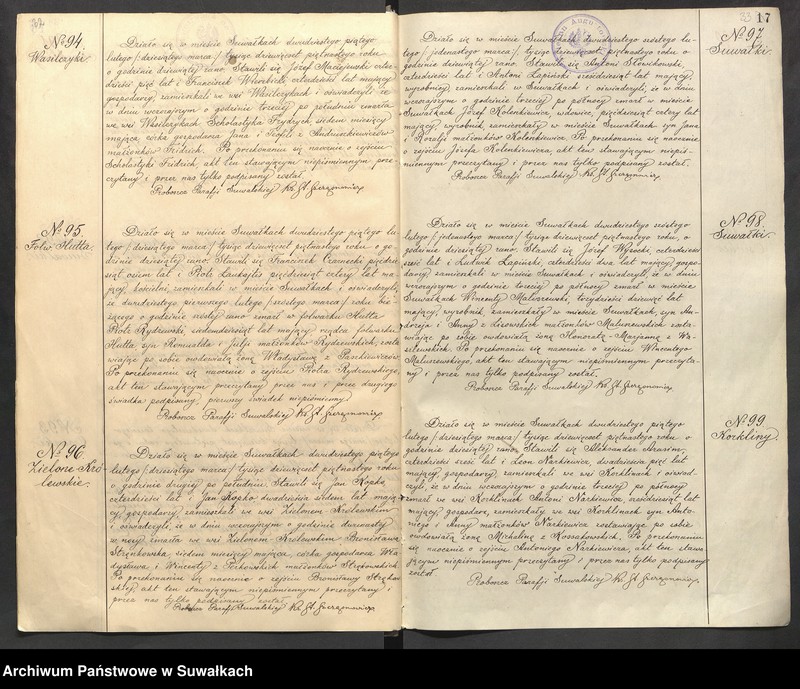 № 94.
Wasilczyki.
Działo się w mieście Suwałkach dwudziestego piątego
lutego /dziesiątego marca/ tysiąc dziewięćset piętnastego roku
o godzinie dziewiątej rano. Stawili się Józef Maciejewski czter-
dzieści pięć lat i Franciszek Wierzbicki czterdzieści lat mający
gospodarze, zamieszkali we wsi Wasilczykach i oświadczyli, że
w dniu wczorajszym o godzinie trzeciej po południu zmarła
we wsi Wasilczykach Scholastyka Frydrych, siedem miesięcy
mająca, córka gospodarza Jana i Julji z Andruszkiewiczów
małżonków Fridrich. Po przekonaniu się naocznie o zejściu
Scholastyki Fridrich, akt ten stawającym niepiśmiennym prze-
czytany i przez nas tylko podpisany został.
Proboszcz Parafji Suwalskiej Ks. St.
№ 95
Folw. Hutta.
Działo się w mieście Suwałkach dwudziestego piątego lu-
tego /dziesiątego marca/ tysiąc dziewięćset piętnastego roku o go-
dzinie dziesiątej rano. Stawili się Franciszek Czarnecki pięćdzie-
siąt osiem lat i Piotr pięćdziesiąt cztery lat ma-
jący, kościelni, zamieszkali w mieście Suwałkach i oświadczyli,
że dwudziestego pierwszego lutego /szóstego marca/ roku bie-
żącego o godzinie szóstej rano zmarł w folwarku Hutta
Piotr Rydzewski, siedemdziesiąt lat mający, rządca folwarku
Hutta syn Romualda i Julji małżonków Rydzewskich, zosta-
wiając po sobie owdowiałą żonę Władysławę z Paszkiewiczów.
Po przekonaniu się naocznie o zejściu Piotra Rydzewskiego,
akt ten stawającym przeczytany przez nas i przez drugiego
świadka podpisany, pierwszy świadek niepiśmienny.
Proboszcz Parafji Suwalskiej Ks. St.
№ 96
Zielone Kró-
lewskie.
Działo się w mieście Suwałkach dwudziestego piątego
lutego /dziesiątego marca/ tysiąc dziewięćset piętnastego roku
o godzinie drugiej po południu. Stawili się Jan Kopko,
czterdzieści lat i Jan Kopko dwadzieścia siedem lat mają-
cy, gospodarze, zamieszkali we wsi Zielonem-Królewskiem
i oświadczyli, że w dniu wczorajszym o godzinie dwunastej
w nocy, zmarła we wsi Zielonem-Królewskiem Bronisława
Strękowska, siedem miesięcy mająca, córka gospodarza Wła-
dysława i Wincenty z małżonków Strękowskich.
Po przekonaniu się naocznie o zejściu Bronisławy Strękow-
skiej, akt ten stawającym niepiśmiennym przeczytany i
przez nas tylko podpisany został.
Proboszcz Parafji Suwalskiej Ks. St.
17
№ 97
Suwałki.
Działo się w mieście Suwałkach dwudziestego szóstego lu-
tego /jedenastego marca/ tysiąc dziewięćset piętnastego roku o
godzinie dziewiątej rano. Stawili się Antoni Słowikowski,
czterdzieści lat i Antoni Łapiński sześćdziesiąt lat mający,
wyrobnicy, zamieszkali w Suwałkach i oświadczyli, że w dniu
wczorajszym o godzinie trzeciej po północy zmarł w mieście
Suwałkach Józef Kolenkiewicz, wdowiec, pięćdziesiąt cztery lat
mający, wyrobnik, zamieszkały w mieście Suwałkach syn Jana
i Rozalji małżonków Kolenkiewicz. Po przekonaniu się naocznie
o zejściu Józefa Kolenkiewicza, akt ten stawającym niepiś-
miennym przeczytany i przez nas tylko podpisany został.
Proboszcz Parafji Suwalskiej Ks. St.
№ 98
Suwałki.
Działo się w mieście Suwałkach dwudziestego szóstego
lutego /jedenastego marca/ tysiąc dziewięćset piętnastego roku, o
godzinie dziesiątej rano. Stawili się Józef Wysocki, czterdzieści
sześć lat i Ludwik Łapiński, czterdzieści dwa lat mający, gospo-
darze, zamieszkali w mieście Suwałkach i oświadczyli, że w dniu
wczorajszym o godzinie trzeciej po północy zmarł w mieście
Suwałkach Wincenty Maluszewski, trzydzieści dziewięć lat
mający, wyrobnik, zamieszkały w mieście Suwałkach, syn An-
drzeja i Anny z Lisowskich małżonków Maluszewskich zosta-
wiając po sobie owdowiałą żonę Honoratę-Marjannę z Wa-
silewskich. Po przekonaniu się naocznie o zejściu Wincentego
Maluszewskiego, akt ten stawającym niepiśmiennym przeczyta-
ny i przez nas tylko podpisany został.
Proboszcz Parafji Suwalskiej Ks. St.
№ 99.
Korkliny.
Działo się w mieście Suwałkach dwudziestego piątego
lutego /dziesiątego marca/ tysiąc dziewięćset piętnastego roku o
godzinie dziesiątej rano. Stawili się Aleksander
czterdzieści sześć lat i Leon Narkiewicz, dwadzieścia pięć lat
mający, gospodarze, zamieszkali we wsi Korklinach i oświad-
czyli, że w dniu wczorajszym o godzinie trzeciej po północy
zmarł we wsi Korklinach Antoni Narkiewicz, sześćdziesiąt lat
mający, gospodarz, zamieszkały we wsi Korklinach syn Anto-
niego i Anny małżonków Narkiewicz zostawiając po sobie
owdowiałą żonę Michalinę z Kossakowskich. Po przekonaniu
się naocznie o zejściu Antoniego Narkiewicza, akt ten stawa-
jącym niepiśmiennym przeczytany i przez nas tylko podpisany
został.
Proboszcz Parafji Suwalskiej Ks. St.
Archiwum Państwowe w Suwałkach